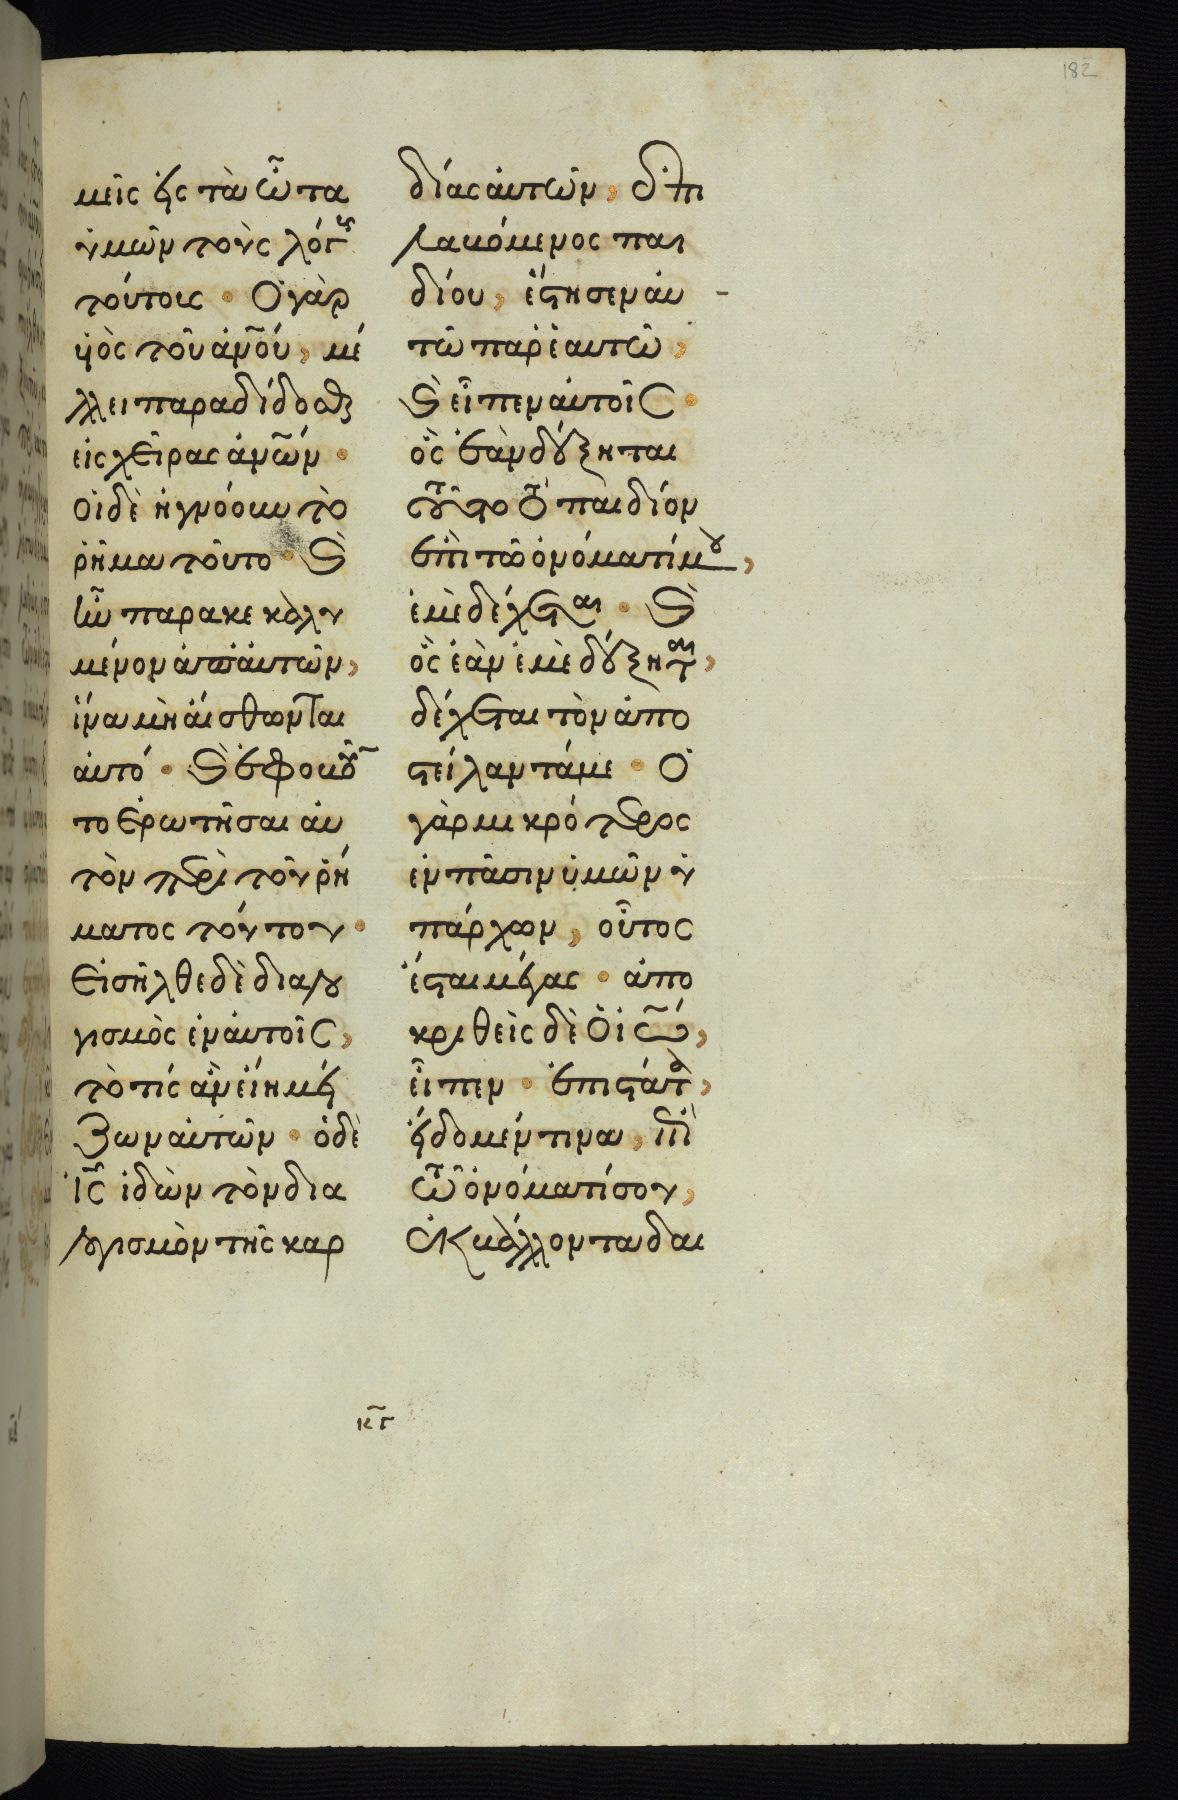 182
μεῖς εἰς τὰ ὦτα
ὑμῶν τοὺς λόγους
τούτους · Ὁ γὰρ
υἱὸς τοῦ ἀνου, μέ
λλει παραδίδοσθαι
εἰς χεῖρας ἀνων ·
οἱ δὲ ἠγνόουν τὸ
ῥῆμα τοῦτο · καὶ
ἦν παρακεκαλυ
μένον ἀπ' αὐτῶν,
ἵνα μὴ αἴσθωνται
αὐτό · καὶ ἐφοβοῦν
το ἐρωτῆσαι αὐ
τὸν περὶ τοῦ ῥή
ματος τούτου ·
Εἰσῆλθε δὲ διαλο
γισμὸς ἐν αὐτοῖς,
τὸ τίς ἂν εἴη μεί
ζων αὐτῶν · ὁ δὲ
ἰς ἰδὼν τὸν δια
λογισμὸν τῆς καρ
δίας αὐτῶν, ἐπι
λαβόμενος παι
δίου, ἔστησεν αὐ
τῶ παρ' ἑαυτῶ,
καὶ εἶπεν αὐτοῖς ·
ὃς ἐὰν δέξηται
τοῦτο τὸ παιδίον
ἐπὶ τῶ ὀνόματί μου,
ἐμὲ δέχεται · καὶ
ὃς ἐὰν ἐμὲ δέξηται,
δέχεται τὸν ἀπο
στείλαντά με · Ὁ
γὰρ μικρότερος
ἐν πᾶσιν ὑμῶν ὑ
πάρχων, οὗτος
ἔσται μέγας · ἀπο
κριθεὶς δὲ ὁ ἰω,
εἶπεν · ἐπιστάτα,
εἴδομέν τινα, ἐπὶ
τῶ ὀνόματί σου,
ἐκβάλλοντα δαι
κγ